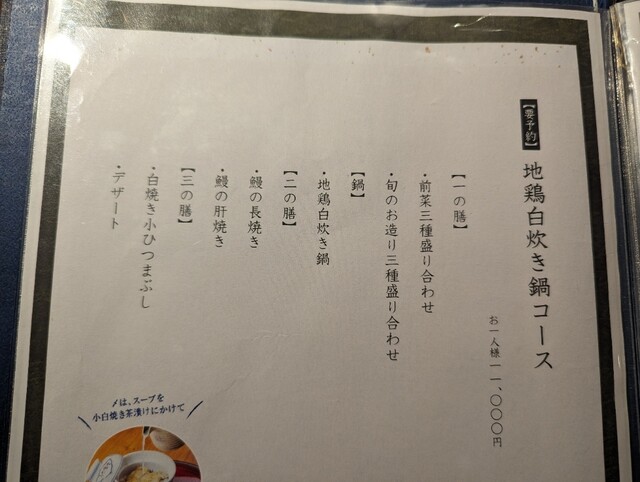 【要予約】
地鶏白炊き鍋コース
お一人様一一、〇〇〇円
【一の膳】
・前菜三種盛り合わせ
・旬のお造り三種盛り合わせ
【鍋】
・地鶏白炊き鍋
【二の膳】
・鰻の長焼き
・鰻の肝焼き
【三の膳】
・白焼き小ひつまぶし
・デザート
〆は、スープを
小白焼き茶漬けにかけて